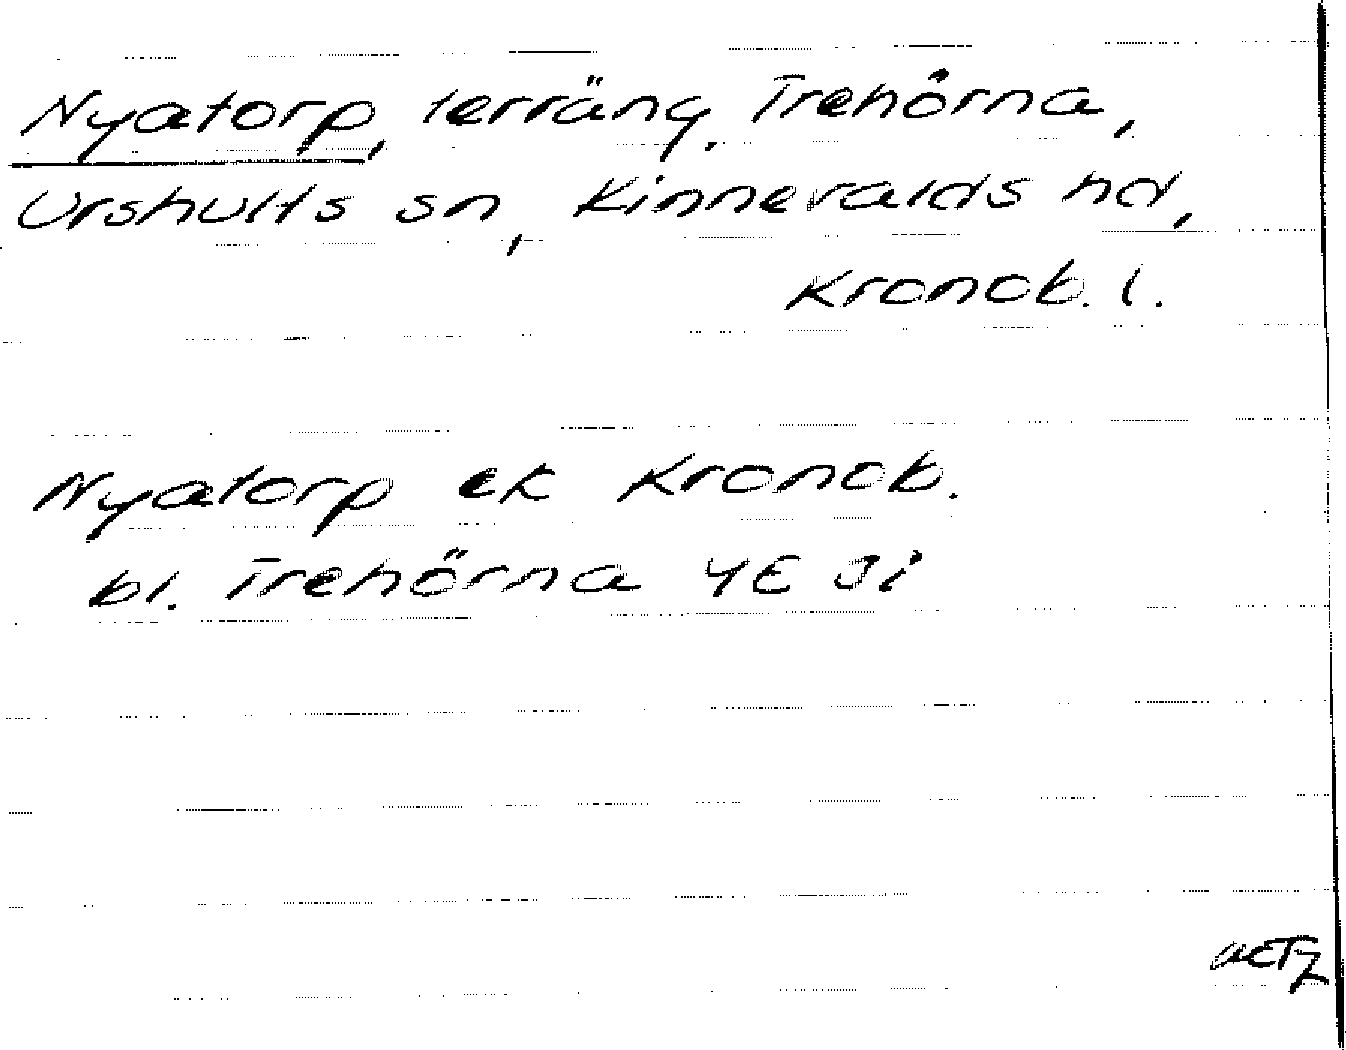 Nyatorp, terräng, Trehörna,
Urshults sn, Kinnevalds hd,
Kronob. l.
Nyatorp ek Kronob.
bl. Trehörna 4E 3i